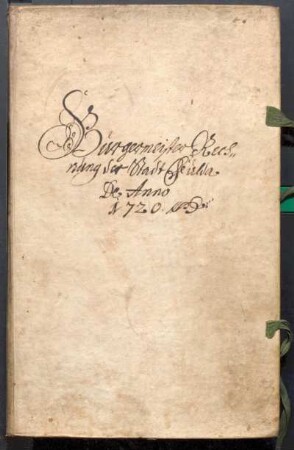 Bürgermeister Rech„
nung der Stadt
De Anno
1720.